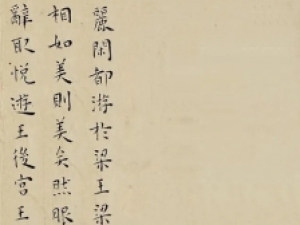 麗閑都游於梁王梁
相如美則美矣然服
辭取悅遊王後宮王